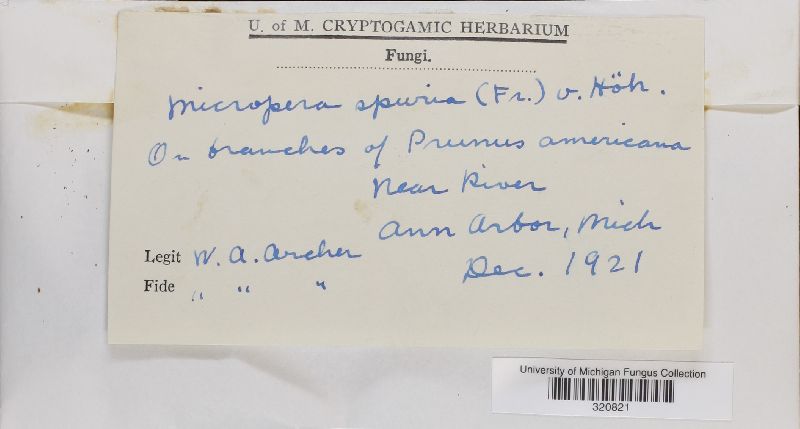 U. of M. CRYPTOGAMIC HERBARIUM
Fungi.
Micropera spuria (Fr.) v. Höh.
On branches of Prunus americana
Near River
Ann Arbor, Mich
Legit W. A. Archer
Dec. 1921
Fide " " "
University of Michigan Fungus Collection
320821